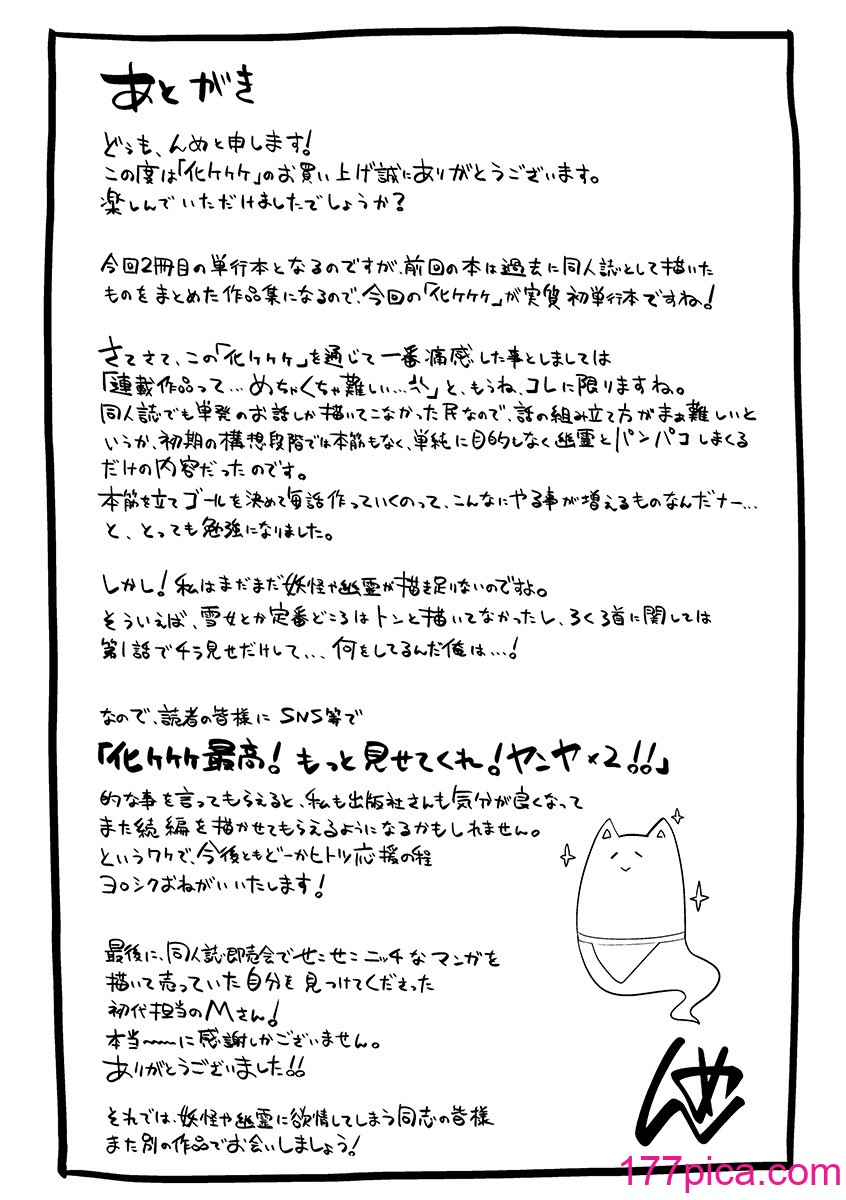 あとがき
どうも、んめと申します!
この度は「化ケケケ」のお買い上げ誠にありがとうございます。
楽しんでいただけましたでしょうか?
今回2冊目の単行本となるのですが、前回の本は過去に同人誌として描いた
ものをまとめた作品集になるので、今回の「化ケケケ」が実質初単行本ですね!
さてさて、この「化ケケケ」を通じて一番痛感した事としましては
「連載作品って…めちゃくちゃ難しい…」と、もうね、コレに限りますね。
同人誌でも単発のお話しか描いてこなかった民なので、話の組み立て方がまぁ難しいと
いうか、初期の構想段階では本筋もなく、単純に目的もなく幽霊とパンパコしまくる
だけの内容だったのです。
本筋を立てゴールを決めて毎話作っていくのって、こんなにやる事が増えるものなんだナー…
と、とっても勉強になりました。
しかし!私はまだまだ妖怪や幽霊が描き足りないのですよ。
そういえば、雪女とか定番どころはトンと描いてなかったし、ろくろ首に関しては
第1話でチラ見せだけして...何をしてるんだ俺は…!
なので、読者の皆様にSNS等で
「化ケケケ最高!もっと見せてくれ!ヤンヤ×2!!」
的な事を言ってもらえると、私も出版社さんも気分が良くなって
また続編を描かせてもらえるようになるかもしれません。
というワケで、今後ともどーかヒトツ応援の程
ヨロシクおねがいいたします!
最後に、同人誌即売会でせこせこニッチなマンガを
描いて売っていた自分を見つけてくださった
初代担当のMさん!
本当~~~に感謝しかございません。
ありがとうございました!!
それでは、妖怪や幽霊に欲情してしまう同志の皆様
また別の作品でお会いしましょう!
んめ
177pica.com